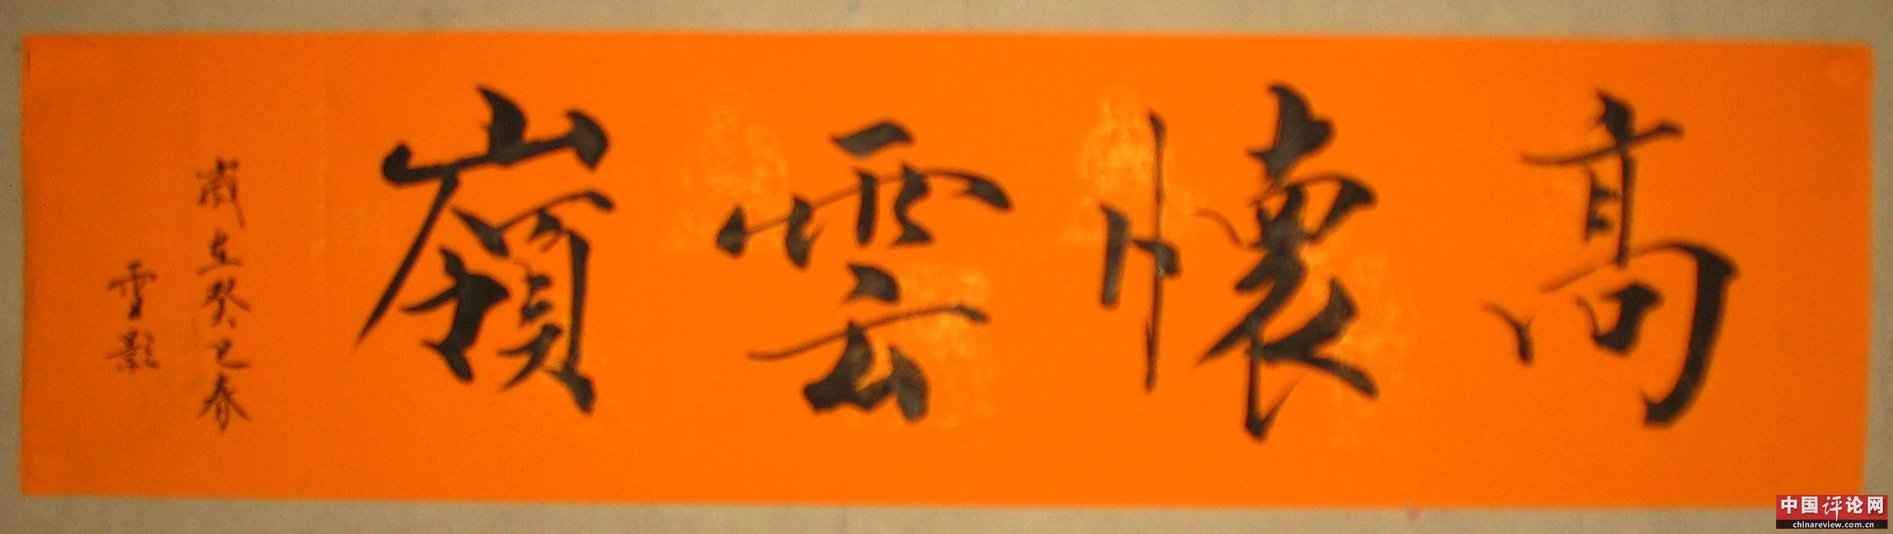 高懷雲嶺
歲在癸巳春
雪影
中国评论网
chinareview.com.cn